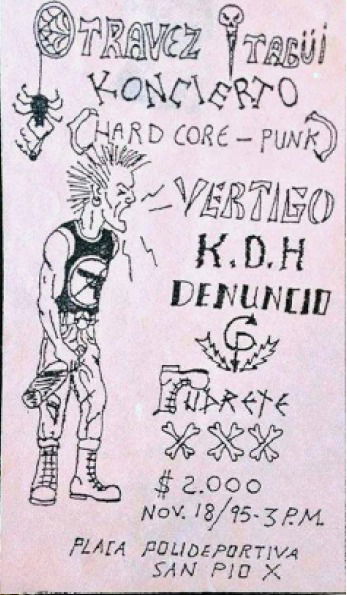 OTRAVEZ ITAGÜÍ
KONCIERTO
(HARD CORE - PUNK)
VERTIGO
K.D.H
DENUNCIO
PUDRETE
XXX
$ 2.000
NOV. 18/95-3 P.M.
PLACA POLIDEPORTIVA
SAN PIO X